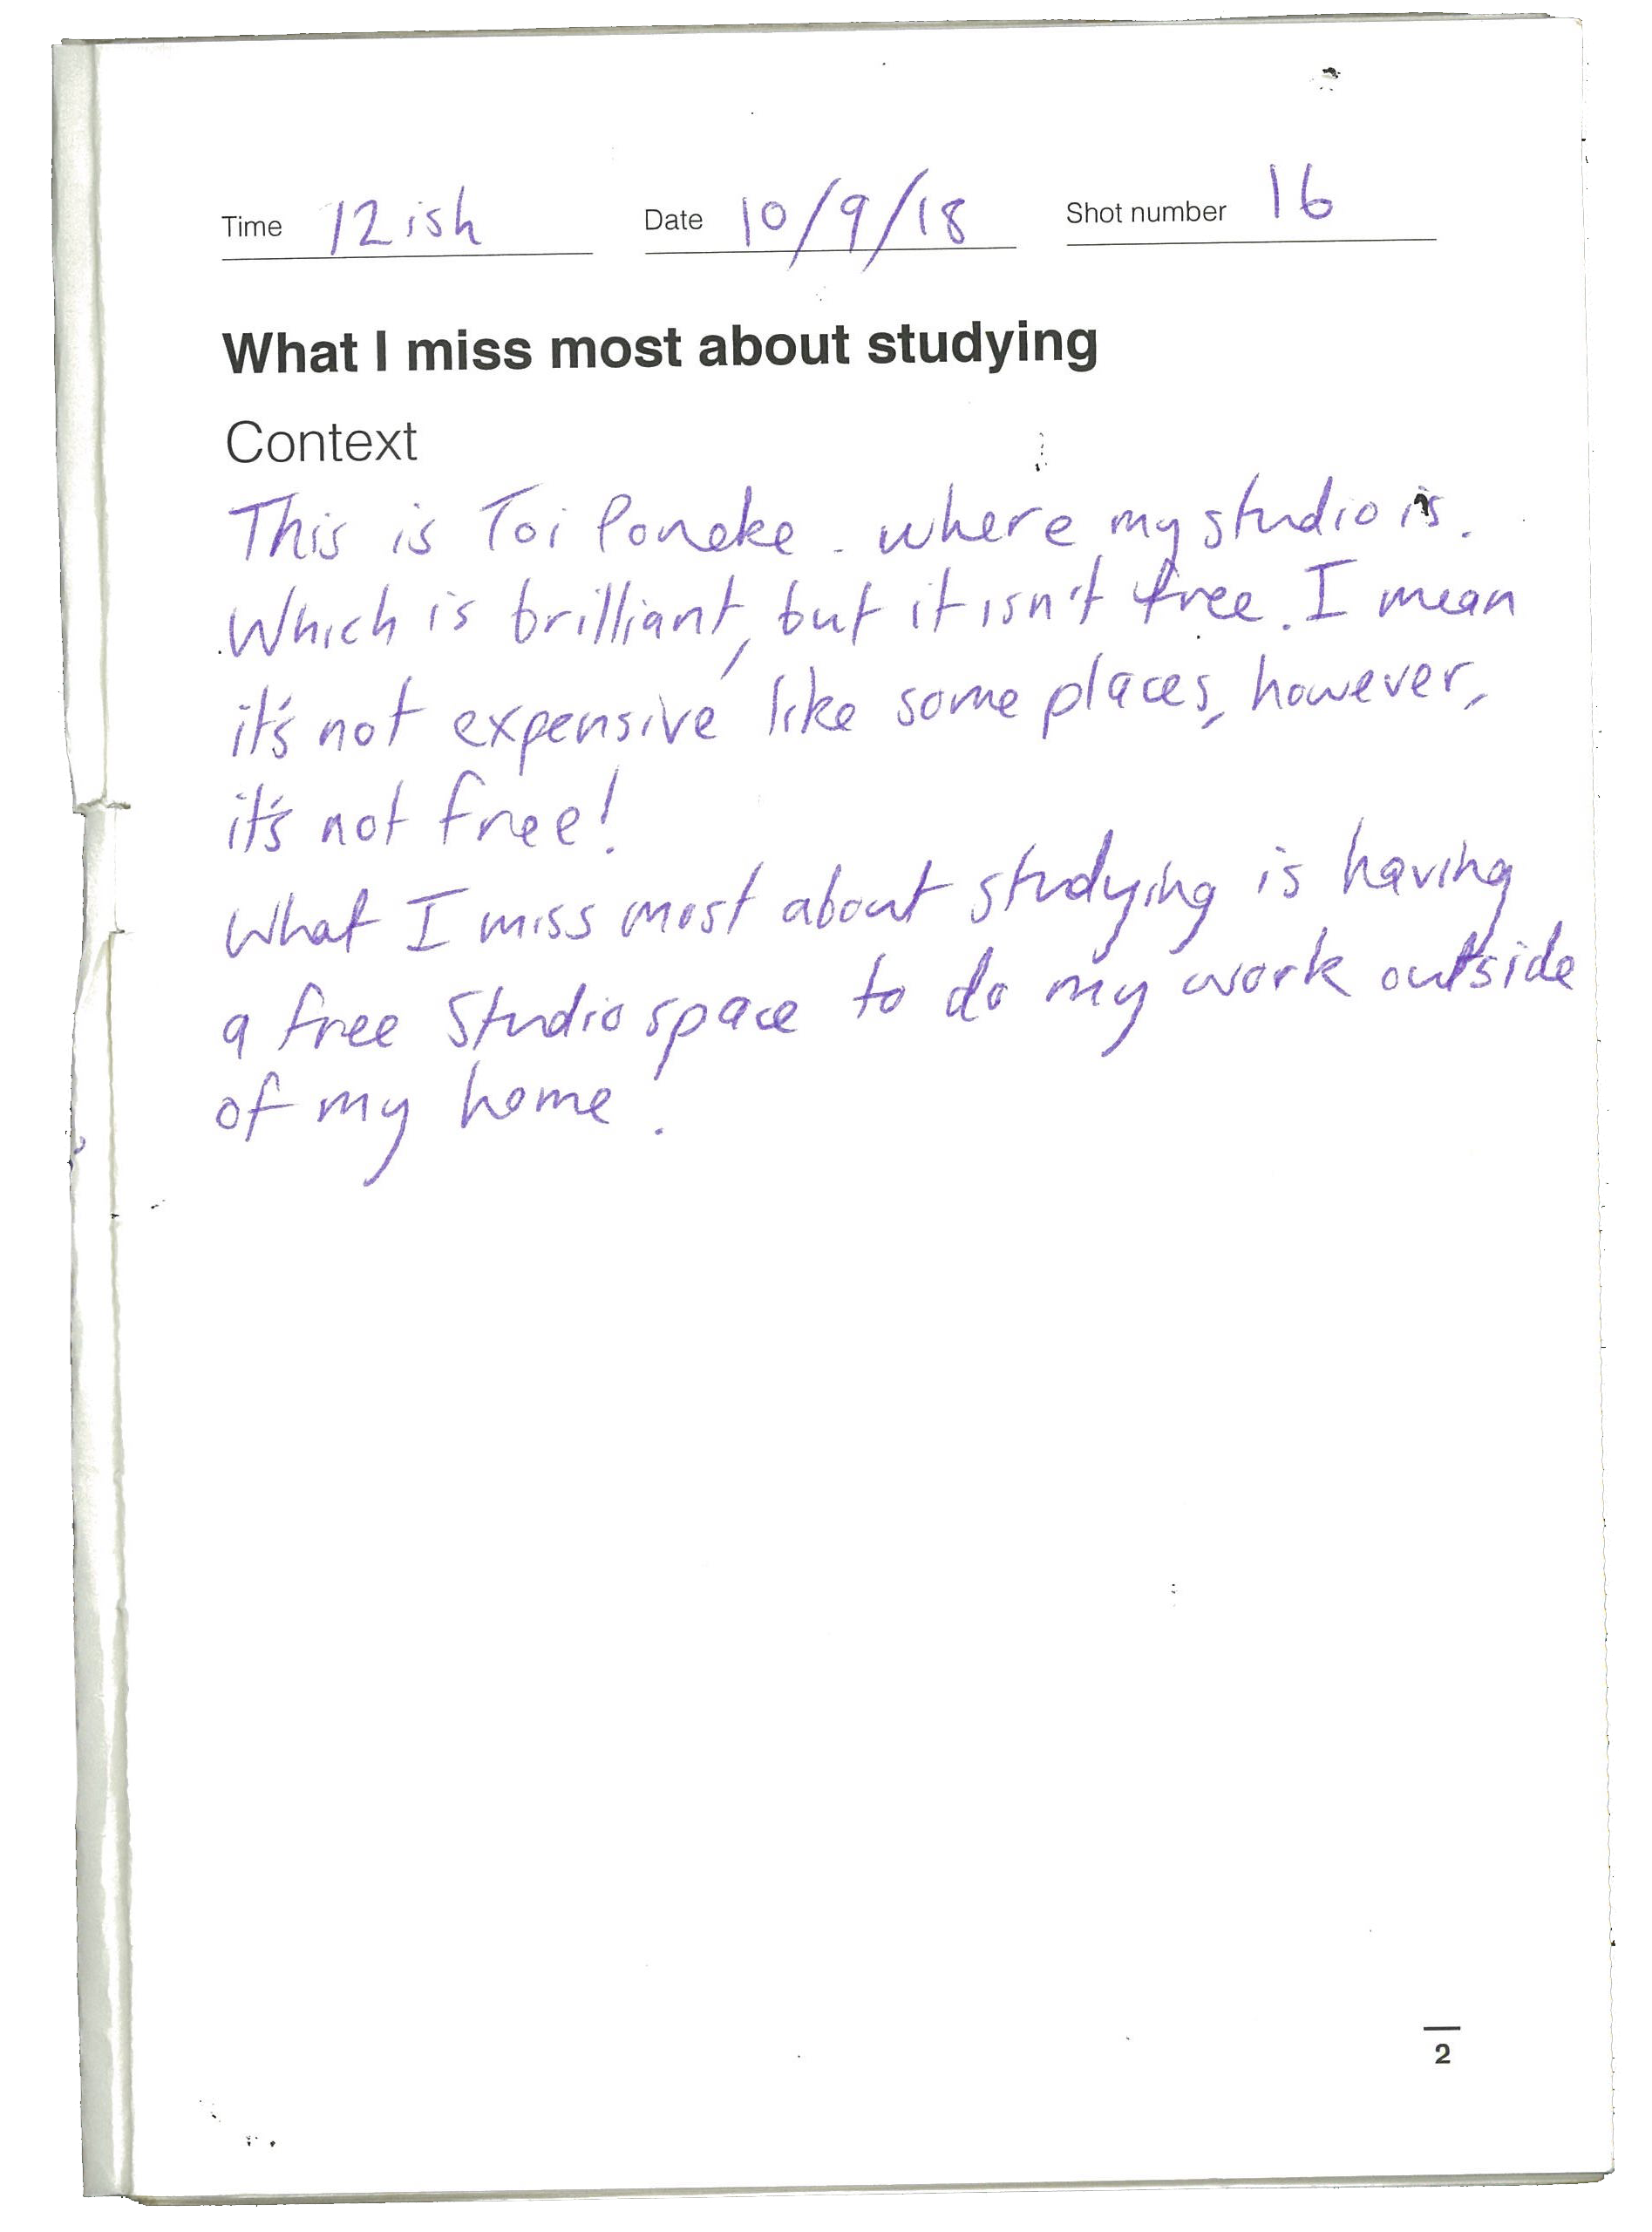 Time 12ish Date 10/9/18 Shot number 16
What I miss most about studying
Context
This is Toi Poneke. where my studio is.
Which is brilliant, but it isn't free. I mean
it's not expensive like some places, however,
it's not free!
What I miss most about studying is having
a free studio space to do my work outside
of my home!
2